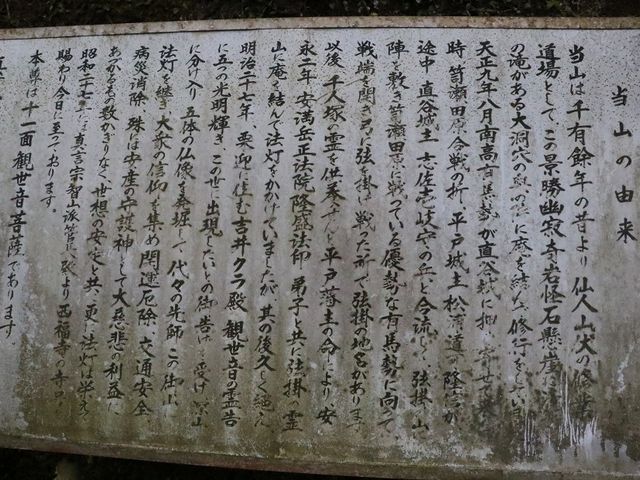 当山の由来
当山は千有餘年の昔より仙人山伏の修業
道場として、この景勝幽寂奇岩怪石懸崖に
の滝がある大洞穴の奥の院に庵を結び修行をして
天正九年八月南高有馬勢が直谷城に押し寄せて来
時、筒瀬田原合戦の折、平戸城主松浦道可隆信が
途中、直谷城主志佐壱岐守の兵と合流し弦掛山
陣を敷き筒瀬田原に戦っている優勢な有馬勢に向って
戦端を開き弓に弦を掛け戦った所で弦掛の地名があります
以後千人塚の霊を供養せんと平戸藩主の命により安
永二年安満岳正法院隆盛法印弟子と共に弦掛の霊
山に庵を結んで法灯をかかげていましたが、其の後久しく絶え
明治二十七年、栗迎に住む吉井クラ殿観世音の霊告
に五の光明輝き、この世に出現したいとの御告げを受け深山
に分け入り五体の仏像を奉堀して代々の先師この仕山
法灯を継ぎ大衆の信仰を集め開運厄除、交通安全、
病災消除、殊に安産の守護神として大慈悲の利益に
あづかるもの数かぎりなく、世想の安定と共、更に法灯は栄え
昭和二十七年に真言宗智山派管長猊より西福寺の寺号
賜わり今日に至っております。
本尊は十一面観世音菩薩であります